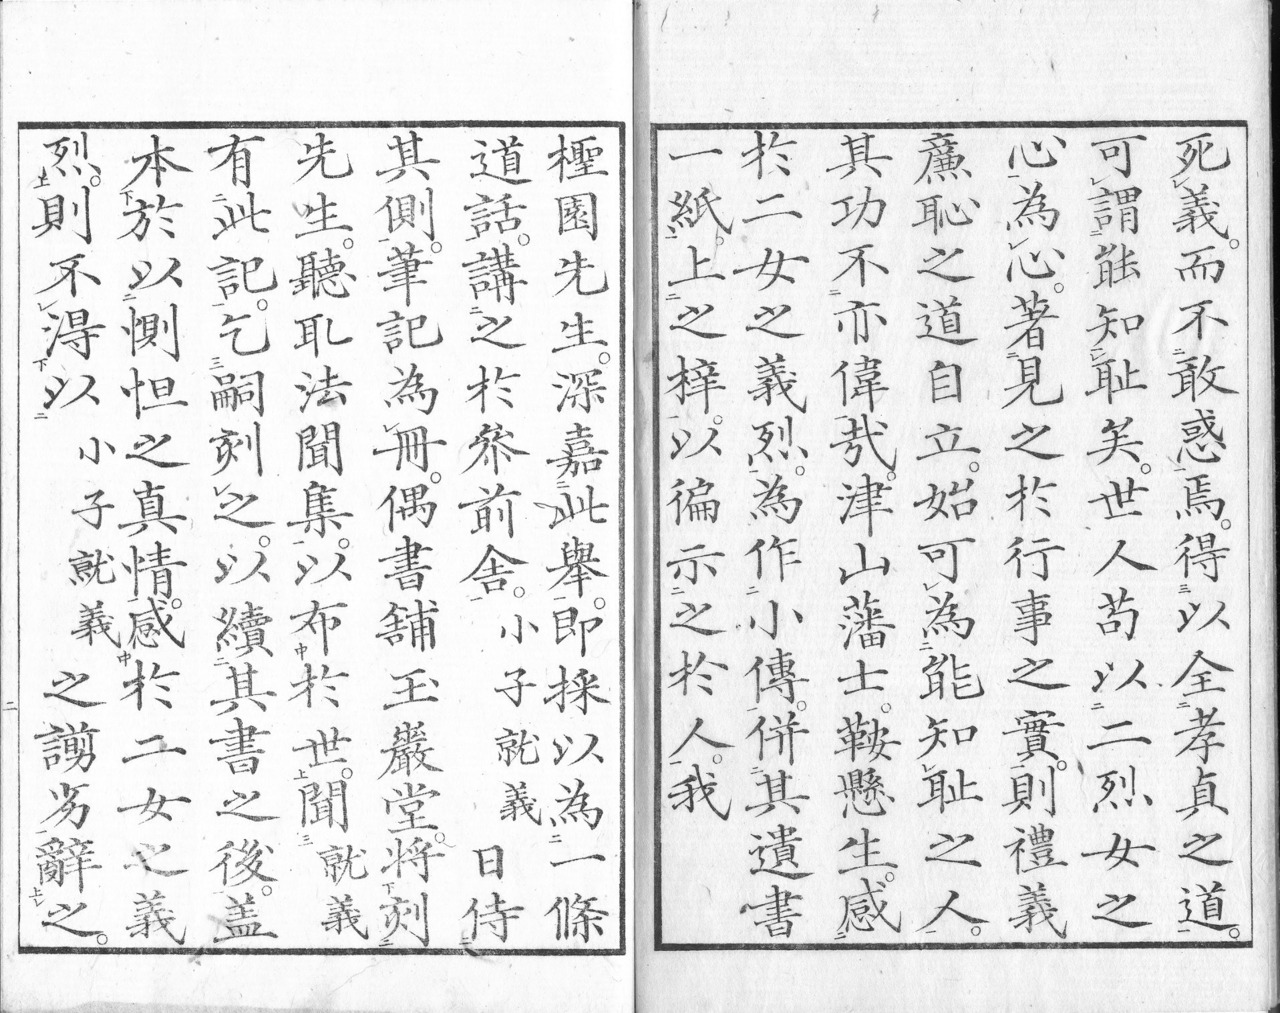 死義。而不敢惑焉。得以全孝貞之道。
可謂能知耻矣。世人苟以二烈女之
心為心。著見之於行事之實。則禮義
廉恥之道自立。始可為能知耻之人。
其功不亦偉哉。津山藩士。鞍懸生。感
於二女之義烈。為作小傳。併其遺書
一紙。上之梓。以徧示之於人。我
檉園先生。深嘉此舉。即採以為一條
道話。講之於叅前舍。小子就義日侍
其側。筆記為冊。偶書舖玉巖堂。将刻
先生聽耴法聞集。以布於世。聞就義
有此記。乞嗣刻之。以續其書之後。盖
本於以惻怛之真情。感於二女之義
烈。則不得以小子就義之謭劣辭之。
二